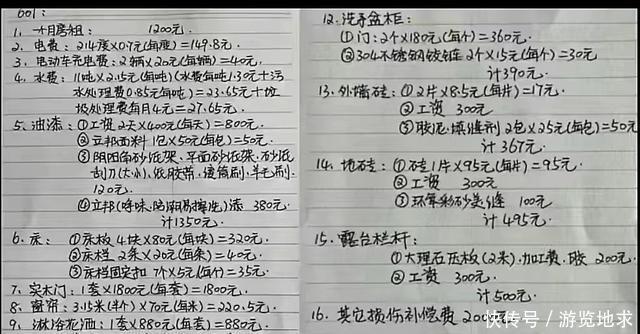 601:
1. 一个月房租: 1200元.
2. 电费: 214度×0.7元(每度)=149.8元.
3. 电动车充电费: 2辆×20元(每辆)=40元.
4. 水费: 11吨×2.15元(每吨)(水费每吨1.30元+污
水处理费0.85元每吨)=23.65元+垃
圾处理费每月4元=27.65元.
5. 油漆: ①工资2天×400元(每天)=800元.
②立邦面料1包×50元(每包)=50元.
③阴阳角砂纸架、平面砂纸架、砂纸
刮刀(大小)、纸胶带、滚筒刷、羊毛刷.
120元.
④立邦(净味、防潮易擦洗)漆 380元.
计1350元.
6. 床: ①床板4块×80元(每块)=320元.
②床栏2条×20元(每条)=40元.
③床栏固定扣 7个×5元(每个)=35元.
7. 实木门: 1套×1800元(每套)=1800元.
8. 窗帘: 3.15米(4个)×70元(每米)=220.5元.
9. 淋浴花洒: 1套×880元(每套)=880元.
12. 洗手盆柜:
①门: 2个×180元(每个)=360元.
②304不锈钢铰链 2个×15元(每个)=30元
计390元.
13. 外墙砖: ①2片×8.5元(每片)=17元.
②工资 300元
③胶泥.填缝剂 2包×25元(每包)=50元
计367元.
14. 地砖: ①砖1片×95元(每片)=95元.
②工资 300元
③环氧彩砂美缝 100元
计495元.
15. 露台栏杆:
①大理石压板(2米).加工费.胶 200元.
②工资 300元.
计500元.
16. 其它损伤补偿费 200
快传号/游览地求